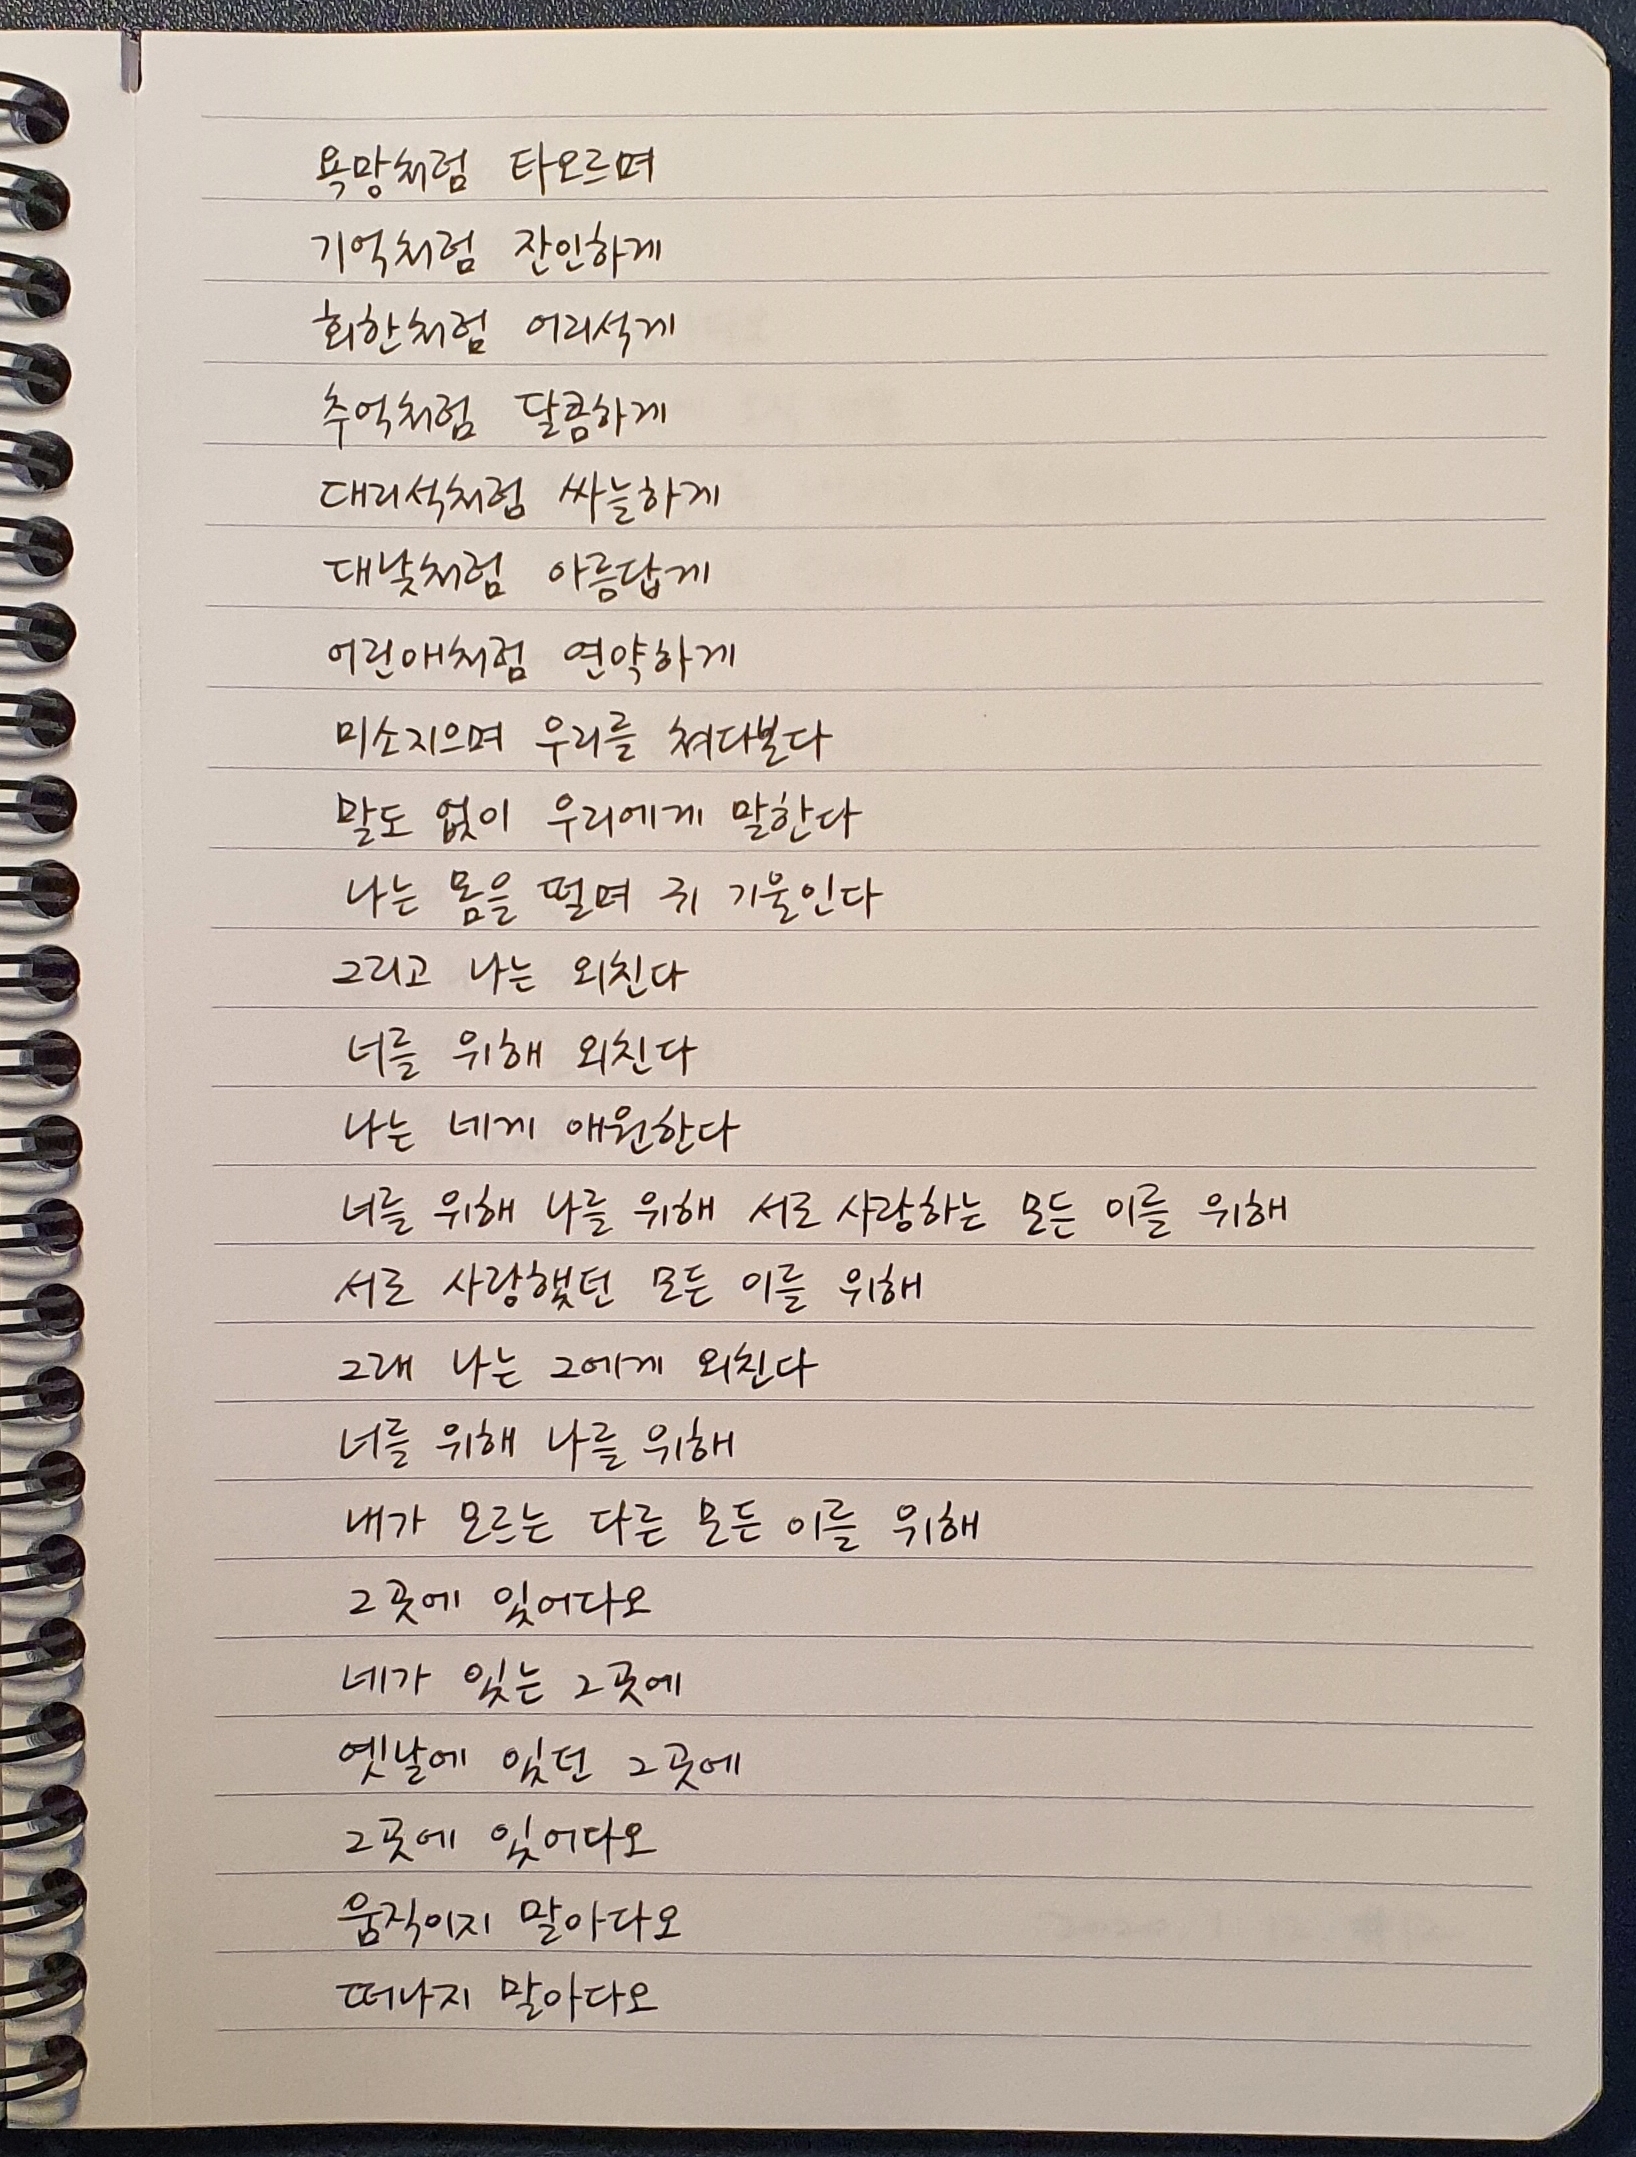 욕망처럼 타오르며
기억처럼 잔인하게
회한처럼 어리석게
추억처럼 달콤하게
대리석처럼 싸늘하게
대낮처럼 아름답게
어린애처럼 연약하게
미소지으며 우리를 쳐다본다
말도 없이 우리에게 말한다
나는 몸을 떨며 귀 기울인다
그리고 나는 외친다
너를 위해 외친다
나는 네게 애원한다
너를 위해 나를 위해 서로 사랑하는 모든 이를 위해
서로 사랑했던 모든 이를 위해
그래 나는 그에게 외친다
너를 위해 나를 위해
내가 모르는 다른 모든 이를 위해
그곳에 있어다오
네가 있는 그곳에
옛날에 있던 그곳에
그곳에 있어다오
움직이지 말아다오
떠나지 말아다오